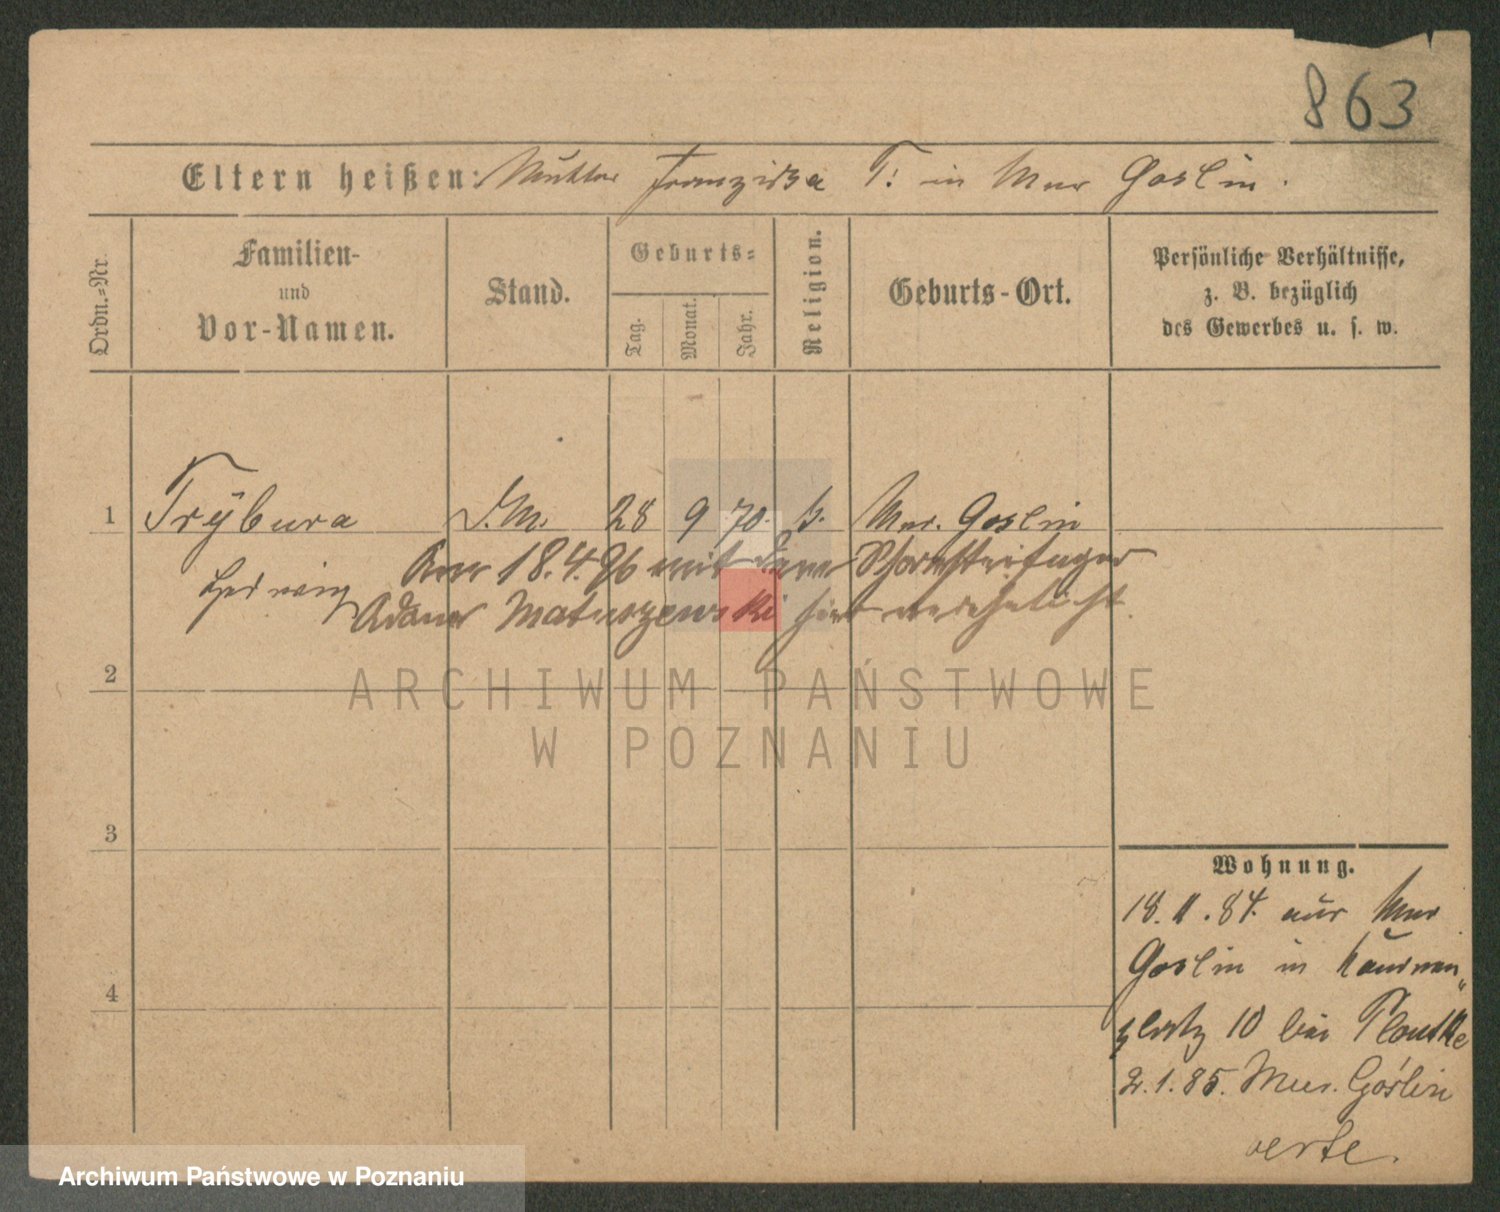 863
Eltern heißen: Mutter Franziska T. in Mur Goslin.
Ordn.-Nr.
Familien-
und
Vor-Namen.
Stand.
Geburts-
Tag.
Monat.
Jahr.
Religion.
Geburts-Ort.
Persönliche Verhältnisse,
z. B. bezüglich
des Gewerbes u. s. w.
1 Trÿbura D.M. 28 9 70. k. Mur. Goslin
Hedwig
Am 18.4.96 mit dem Schornsteinfeger
Adam Matuszewski hier verehelicht.
2
3
4
Wohnung.
18.11.84. aus Mur
Goslin in Kanonen
platz 10 bei
2.1.85. Mur. Goślin
verte.
ARCHIWUM PAŃSTWOWE
W POZNANIU
Archiwum Państwowe w Poznaniu